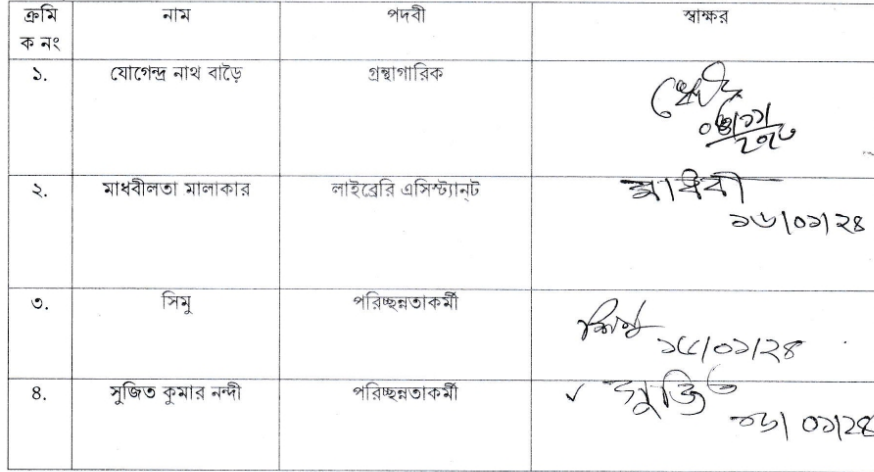 ক্রমি নাম পদবী স্বাক্ষর
ক নং
১. যোগেন্দ্র নাথ বাড়ৈ গ্রন্থাগারিক
২. মাধবীলতা মালাকার লাইব্রেরি এসিস্ট্যান্ট মাধবী
১৬/০১/২৪
৩. সিমু পরিচ্ছন্নতাকর্মী সিমু
৪. সুজিত কুমার নন্দী পরিচ্ছন্নতাকর্মী সুজিত
১৬/০১/২৪